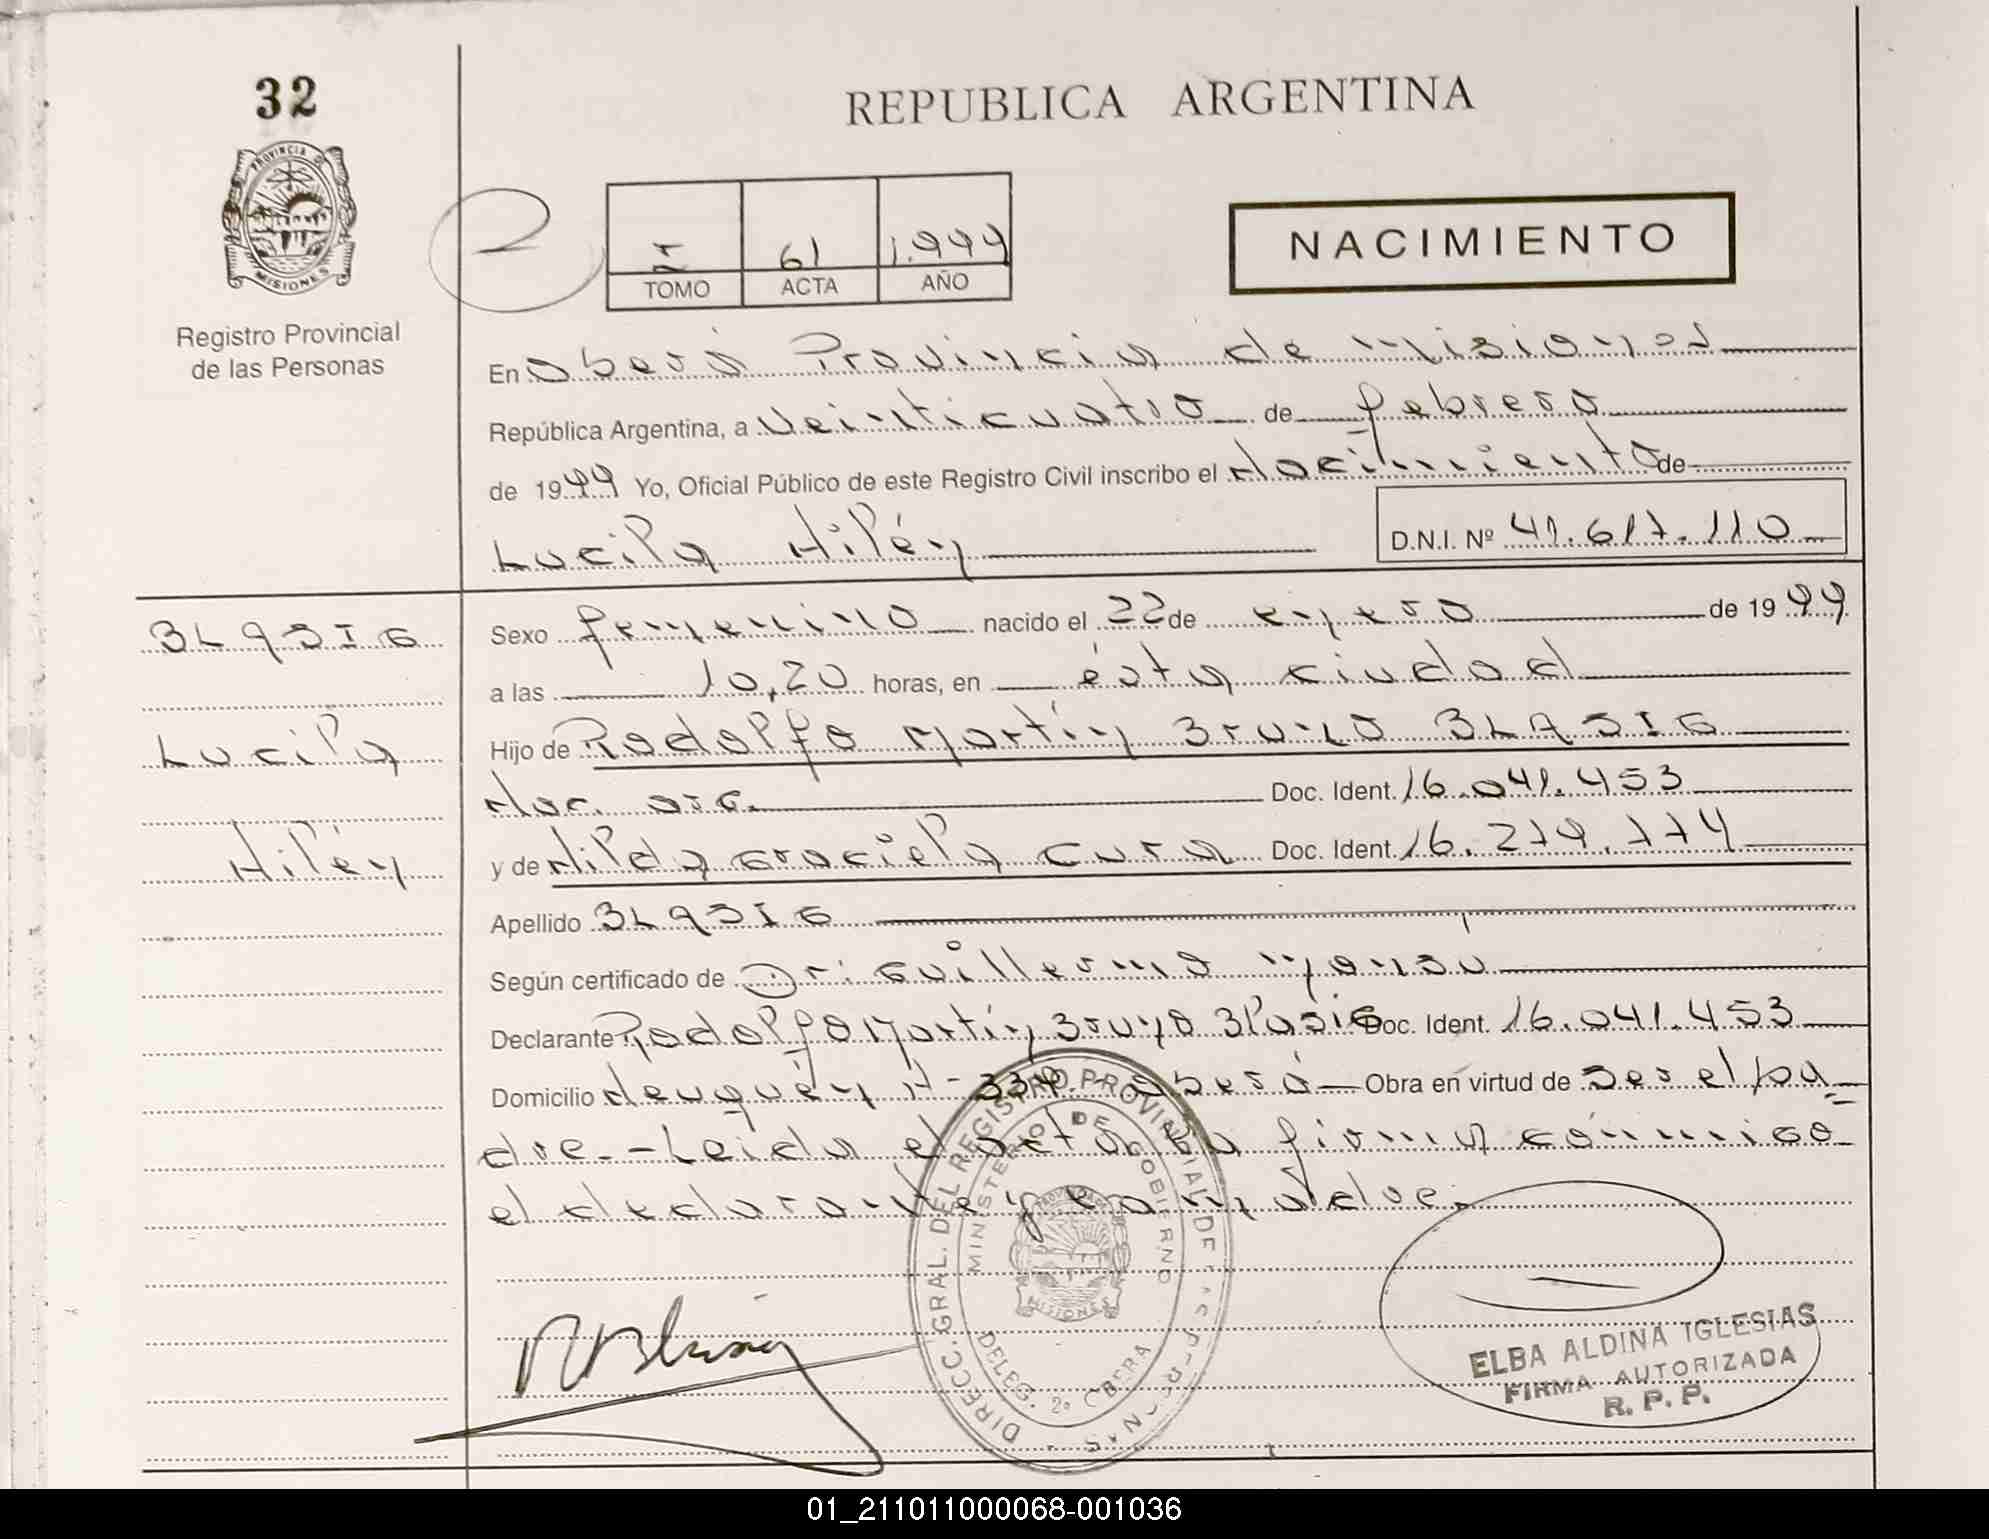 32
REPUBLICA ARGENTINA
PROVINCIA DE
MISIONES
Registro Provincial
de las Personas
2
I 61 1.999
TOMO ACTA AÑO
NACIMIENTO
En Oberá Provincia de Misiones
República Argentina, a Veinticuatro de febrero
de 1999 Yo, Oficial Público de este Registro Civil inscribo el Nacimiento de
Lucila Ailén D.N.I. Nº 41.617.110
BLASIG
Lucila
Ailén
Sexo femenino nacido el 22 de enero de 1999
a las 10,20 horas, en ésta ciudad
Hijo de Rodolfo Martín Bruno BLASIG
Nac. arg. Doc. Ident. 16.041.453
y de Hilda Graciela Cura Doc. Ident. 16.279.774
Apellido BLASIG
Según certificado de Dr: Guillermo
Declarante Rodolfo Martín Bruno Blasig Doc. Ident. 16.041.453
Domicilio Neuquén N- Oberá Obra en virtud de ser el pa
dre.-Leida el acta la firma conmigo
el declarante y
DIRECC. GRAL. DEL REGISTRO PROVINCIAL DE LAS PERSONAS
MINISTERIO DE GOBIERNO
PROVINCIA DE
MISIONES
DELEG. 2ª OBERA
ELBA ALDINA IGLESIAS
FIRMA AUTORIZADA
R. P. P.
01_211011000068-001036